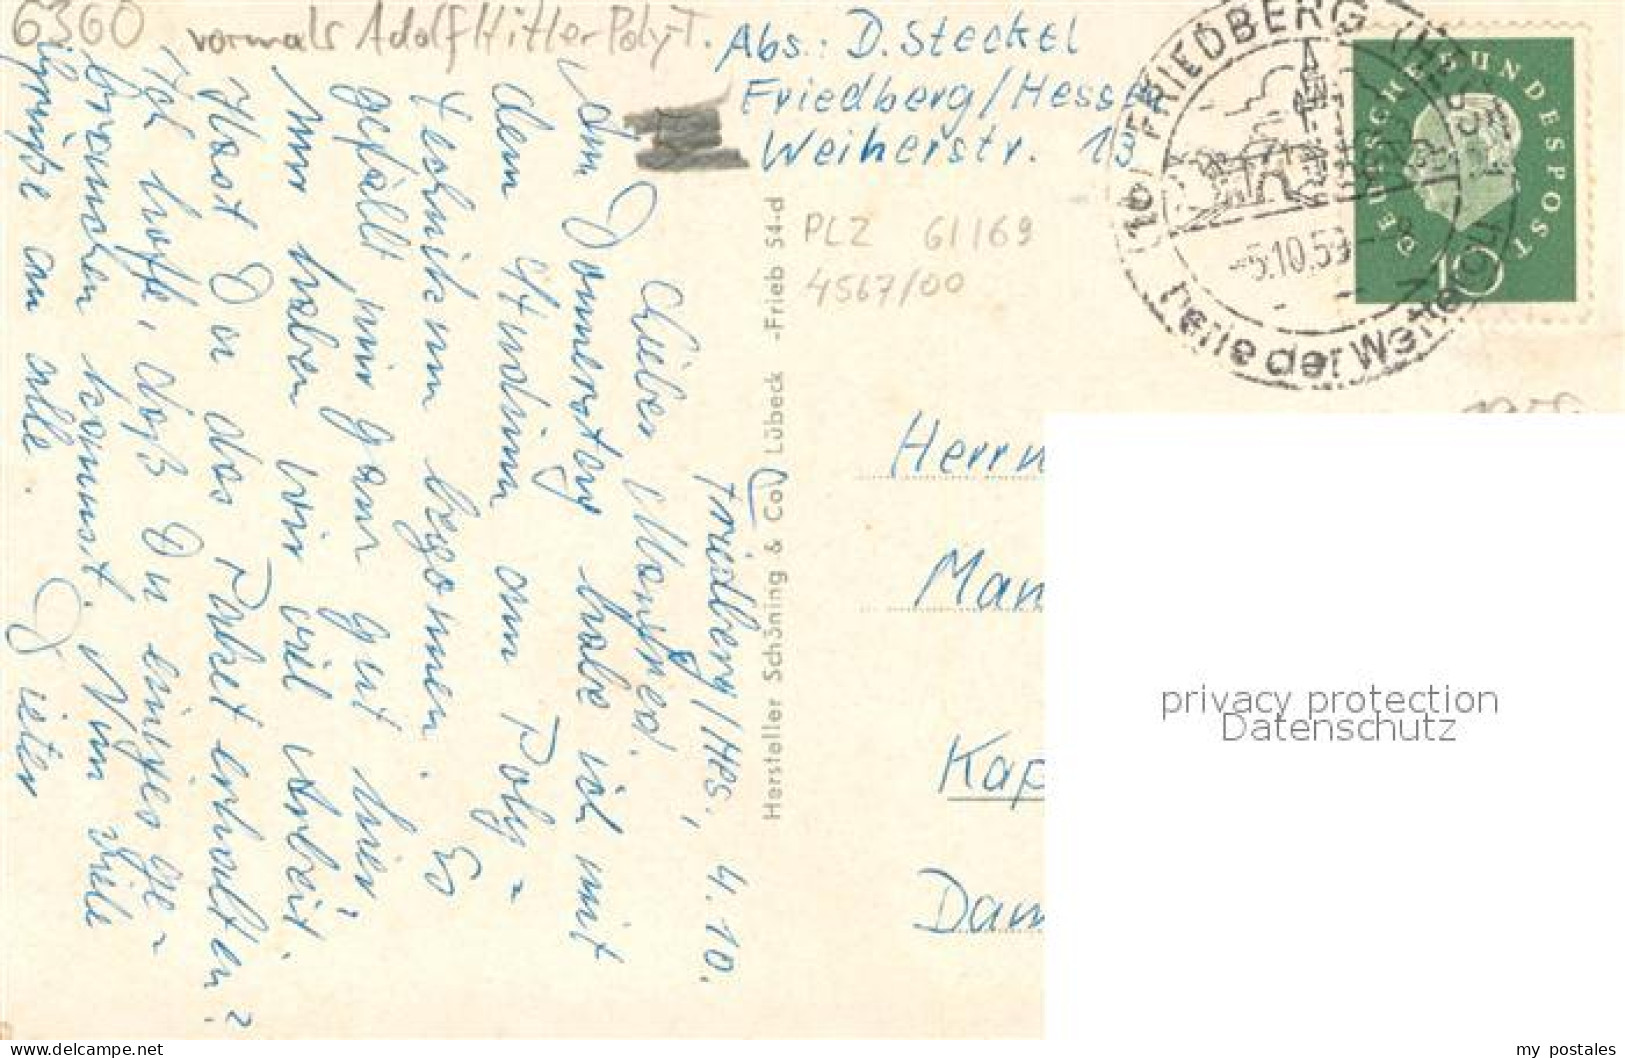 6360 vormals Adolf Hitler Poly-T.
Abs.: D. Steckel
Friedberg/Hessen
Weiherstr. 13
PLZ 61169
4567/00
(16) FRIEDBERG (HESSEN)
-5.10.59.-8
Perle der Wetterau
DEUSCHE BUNDESPOST
10
Herrn
Man
Kap
Dam
Hersteller Schöning & Co, Lübeck -Frieb 54-d
Friedberg/Hes., 4.10.
Lieber Manfred!
Am Donnerstag habe ich mit
dem Studium am Poly-
technikum begonnen. Es
gefällt mir ganz gut hier,
nur haben wir viel Arbeit.
Hast Du das Paket erhalten?
Ich hoffe, daß Du einiges ge-
brauchen kannst. Nun viele
Grüße an alle.
Dieter
privacy protection
Datenschutz
my postales